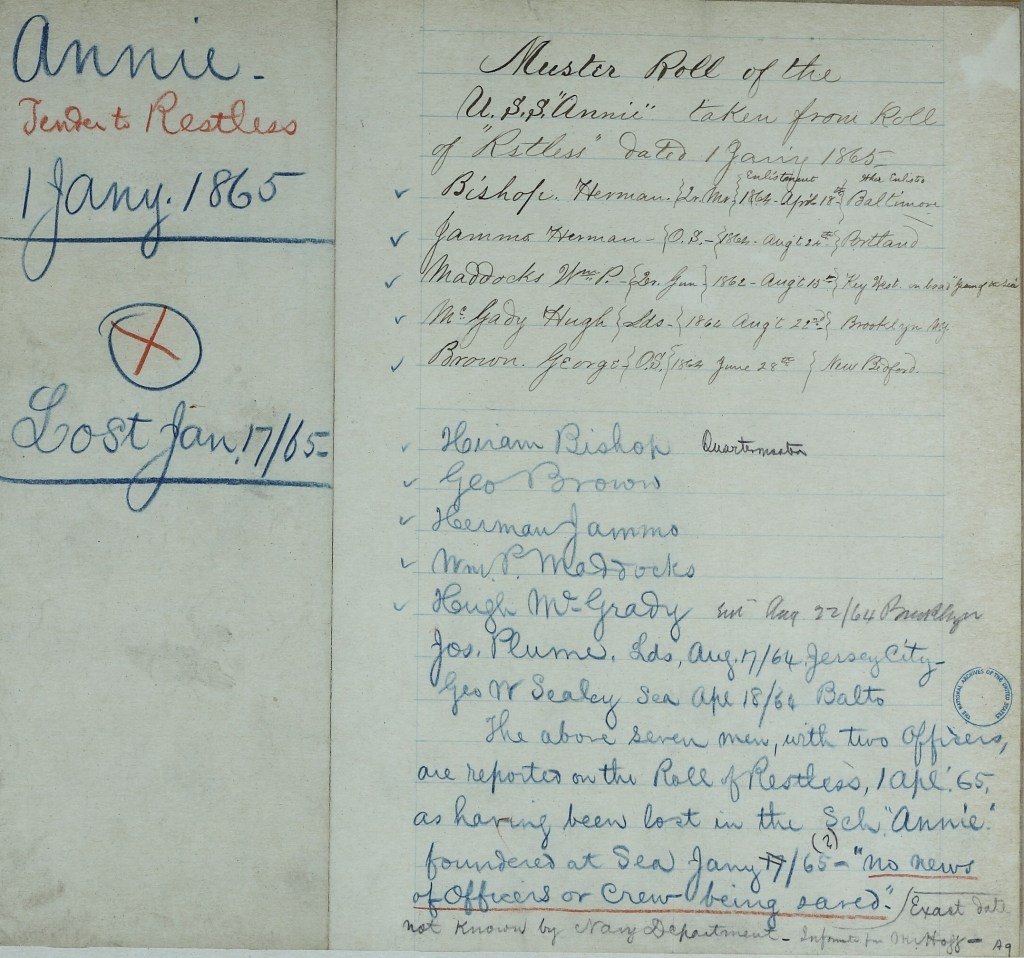 Annie.
Tender to Restless
1 Jany. 1865
X
Lost Jan. 17/65-
Muster Roll of the
U.S.S. "Annie" taken from Roll
of "Rstless" dated 1 Jany 1865
Enlistment Wher Enlistd
Bishop. Herman. {Qr. Mr} 1864 - April 18th} Baltimore
Jammo Herman - {O.S. - {1864 - Augt 24th} Portland
Maddocks Wm. P. - {Qr. Gun} 1862 - Augt 15th} Key West. on board
Mc Gady Hugh {Lds - {1864 Augt 22nd} Brooklyn NY
Brown. George {O.S. {1864 June 28th } New Bedford.
Hiram Bishop Quartermaster
Geo Brown
Herman Jammo
Wm. P. Maddocks
Hugh McGrady Aug 22/64 Brooklyn
Jos. Plume. Lds, Aug. 17/64 Jersey City-
Geo W Sealey Sea Apl 18/64 Balto
The above seven men, with two Officers,
are reported on the Roll of Restless, 1 Apl. 65,
as having been lost in the Sch. "Annie."
(?)
foundered at Sea Jany 17/65 - "no news
of Officers or Crew being saved." /Exact date
not known by Navy Department - Mr. Hoff -
THE NATIONAL ARCHIVES OF THE UNITED STATES